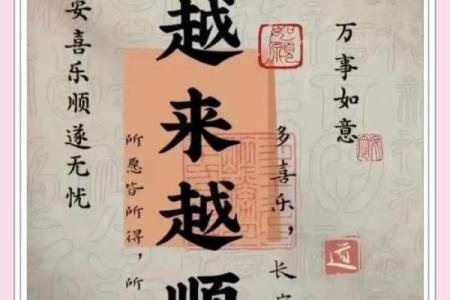 万事如意
道
多喜乐，长安
如愿
越来越顺
所愿皆所得，所
安喜乐顺遂无忧